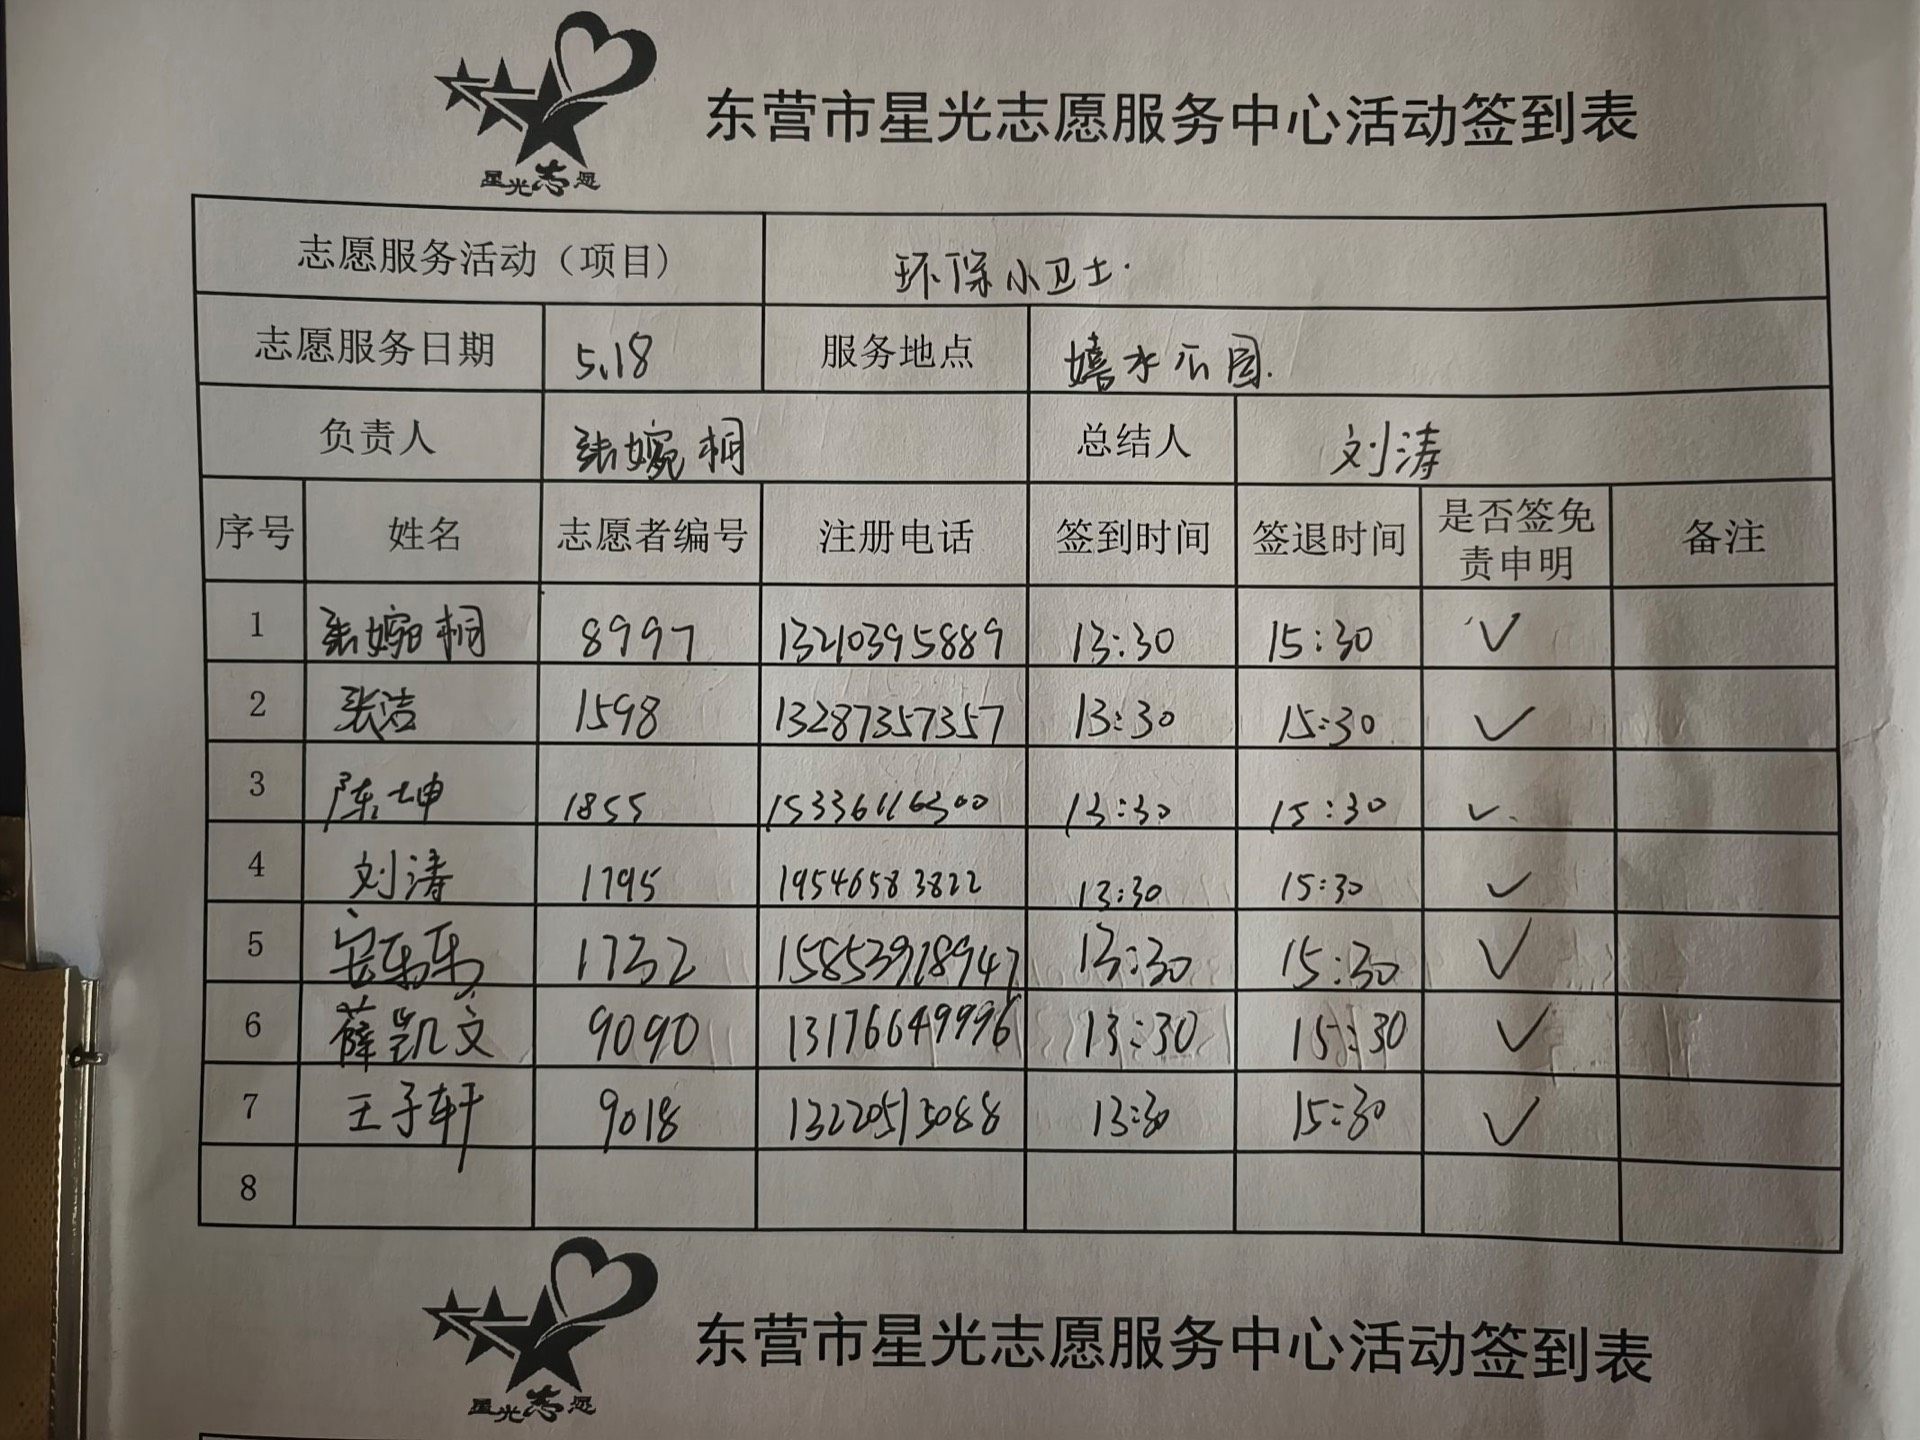 星光志愿
东营市星光志愿服务中心活动签到表
志愿服务活动（项目） 环保小卫士.
志愿服务日期 5.18 服务地点 嬉水公园.
负责人 张婉桐 总结人 刘涛
序号 姓名 志愿者编号 注册电话 签到时间 签退时间 是否签免责申明 备注
1 张婉桐 8997 13210395889 13:30 15:30 ✓
2 张洁 1598 13287357357 13:30 15:30 ✓
3 陈坤 1855 15336116300 13:30 15:30 ✓
4 刘涛 1795 19546583822 13:30 15:30 ✓
5 安乐乐 1732 15853928947 13:30 15:30 ✓
6 薛凯文 9090 13176649996 13:30 15:30 ✓
7 王子轩 9018 13220513088 13:30 15:30 ✓
8
星光志愿
东营市星光志愿服务中心活动签到表